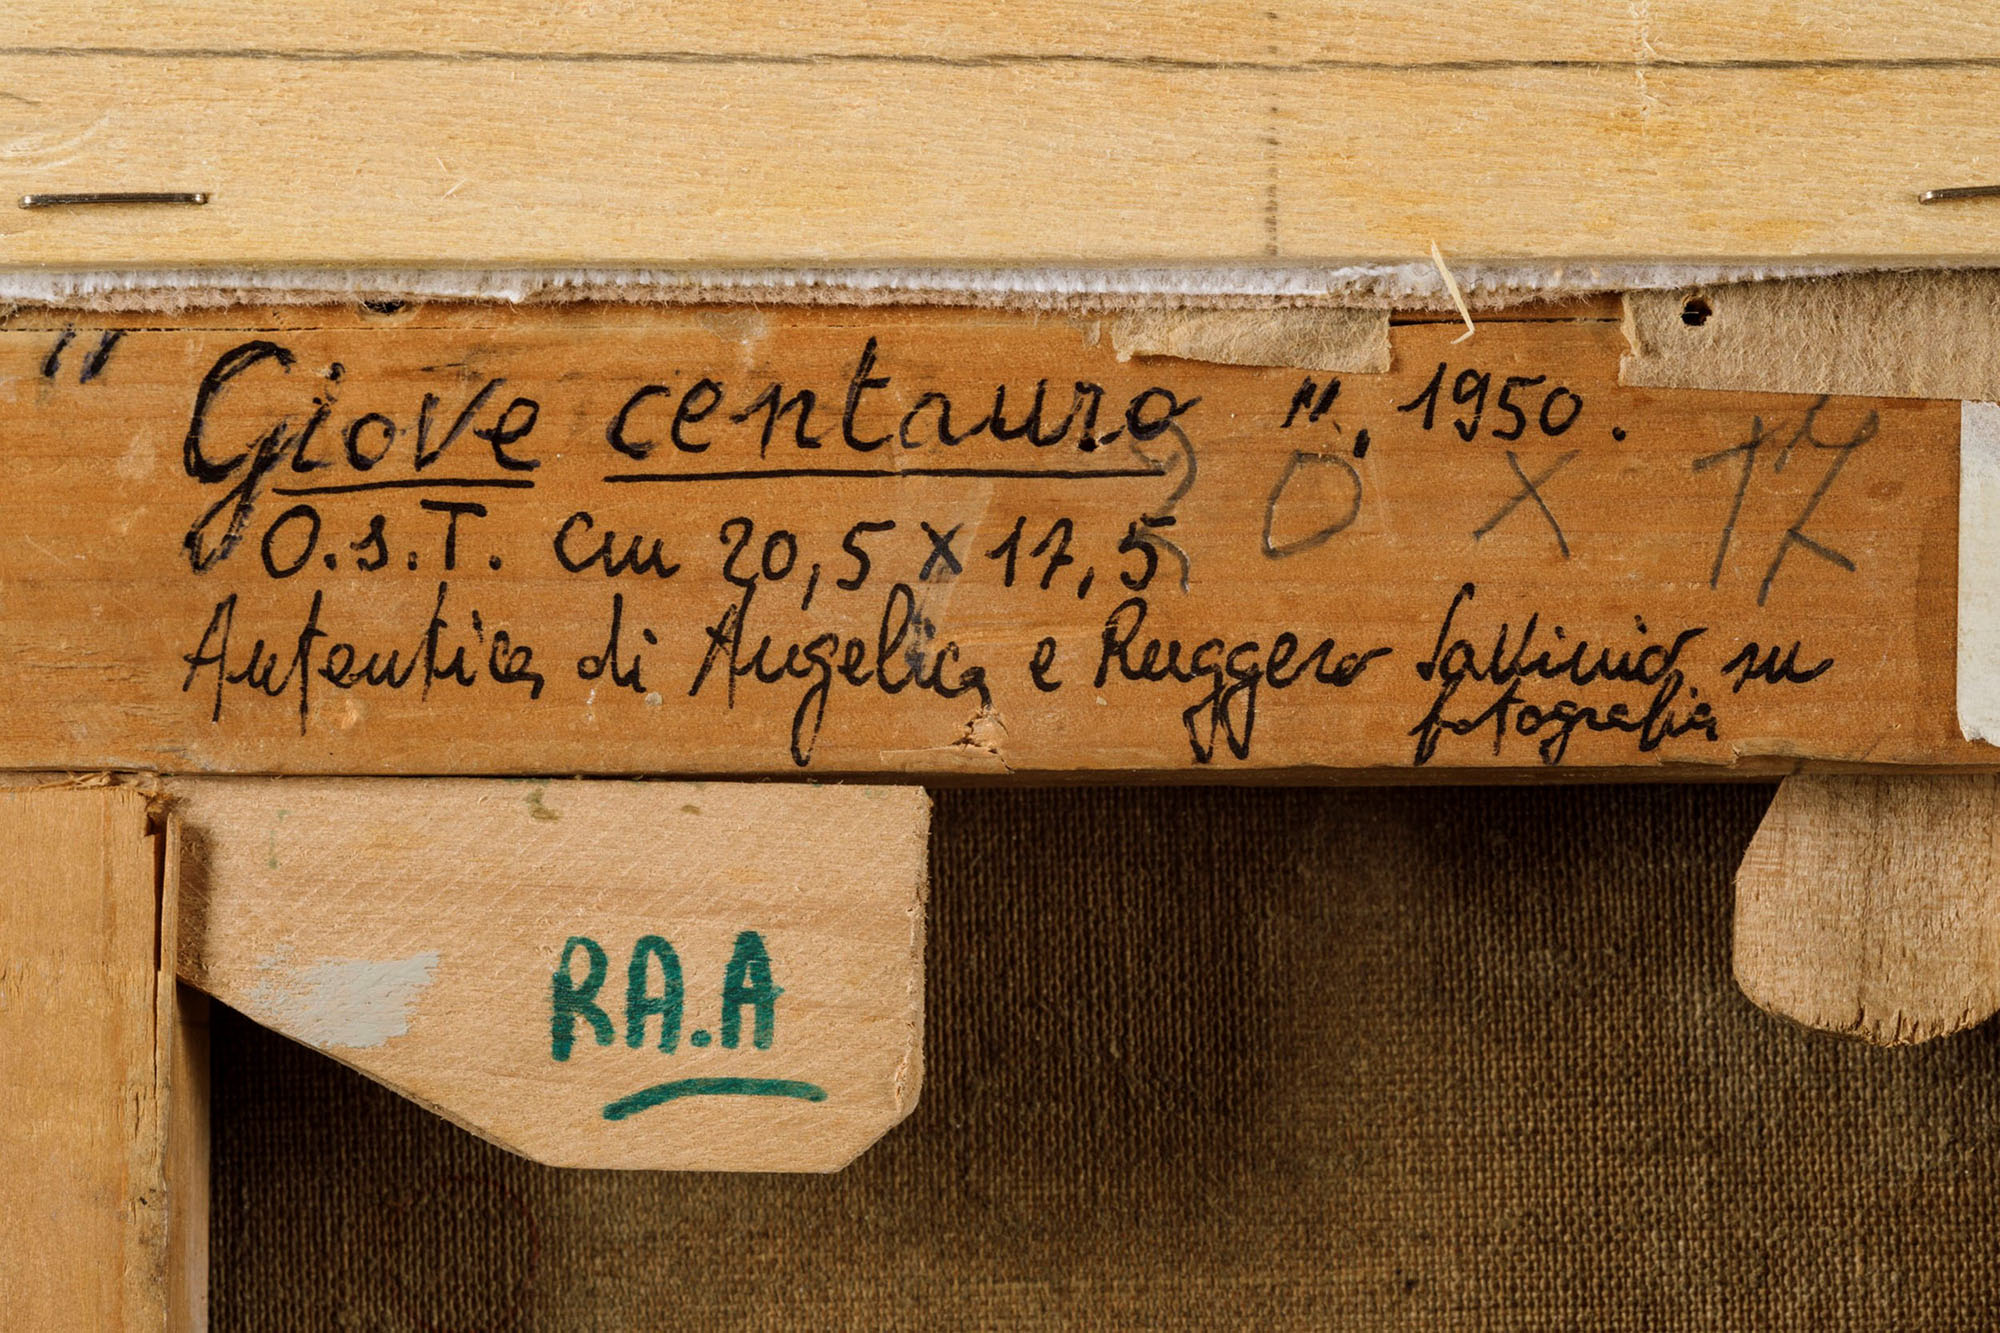 "Giove centauro", 1950.
20 x 17
O.S.T. cm 20,5 x 17,5
Autentica di Angelica e Ruggero Savinio su
fotografia
RA.A